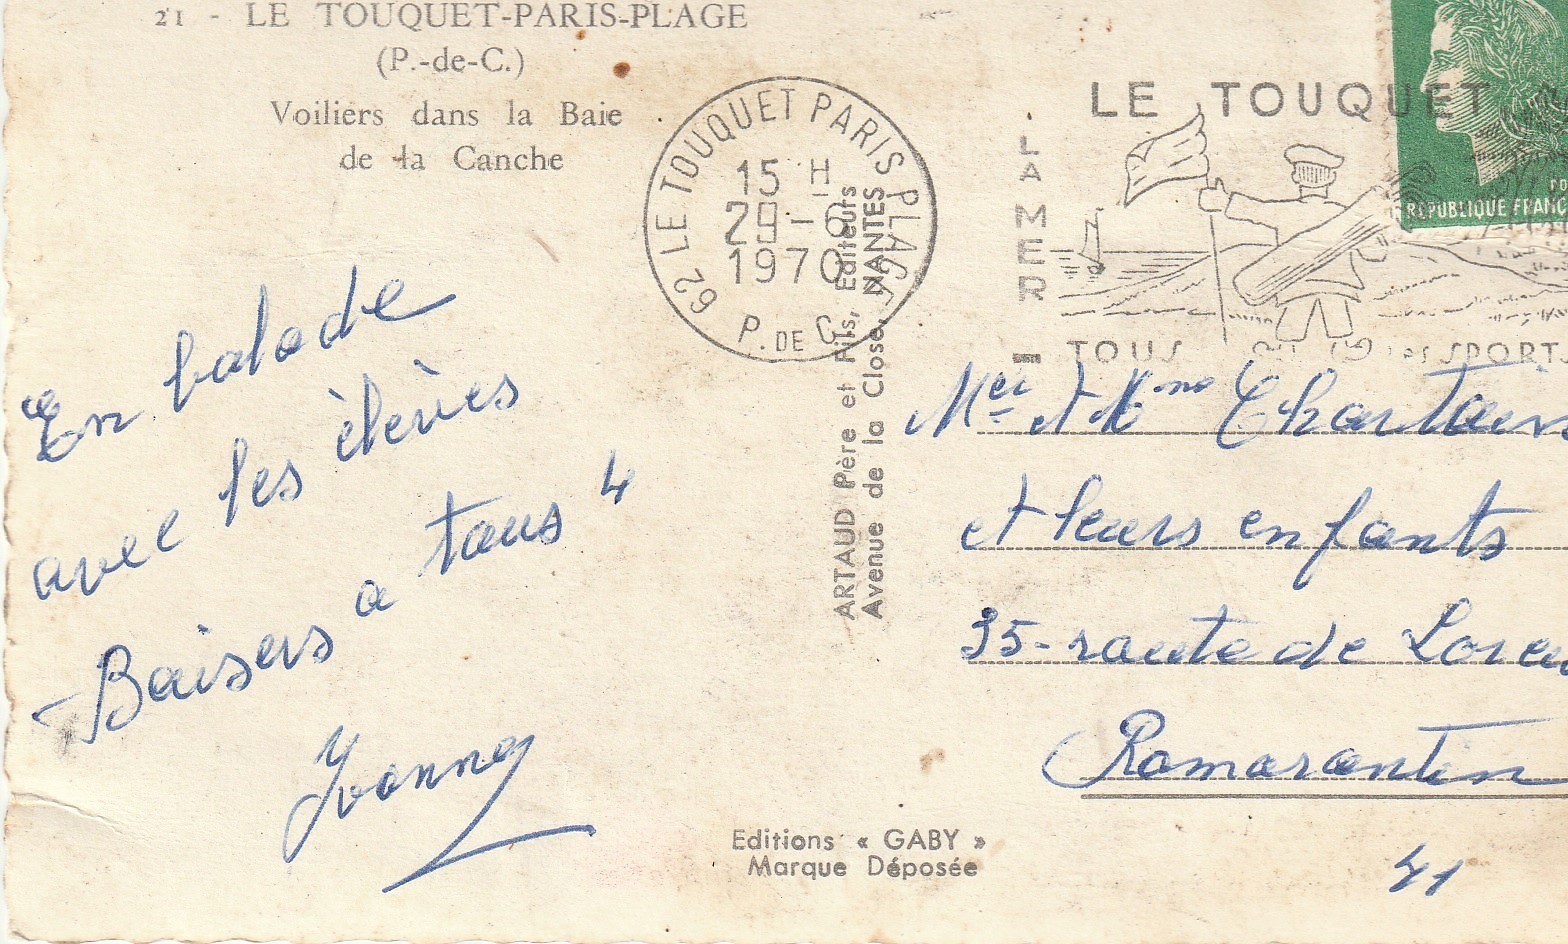 21 - LE TOUQUET-PARIS-PLAGE
(P.-de-C.)
Voiliers dans la Baie
de la Canche
En balade
avec les élèves
Baisers a tous 4
Yvonne
62 LE TOUQUET PARIS PLAGE
15 H
29-6
1970
P. DE C.
LE TOUQUET
LA MER
TOUS SPORTS
REPUBLIQUE FRANC
ARTAUD Père et Fils, Editeurs
Avenue de la Close, NANTES
et Mme
et leurs enfants
35 - route de
Romorantin
41
Editions « GABY »
Marque Déposée